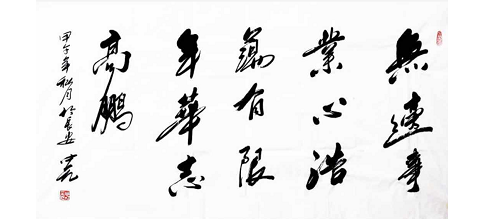 無事
業心浩
瀚有限
年華志
高鵬
甲午年秋月於長安